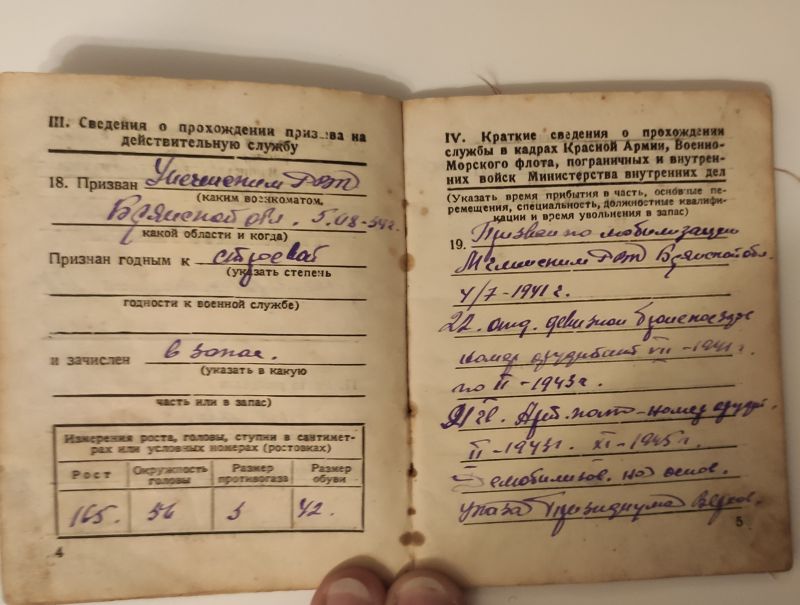 III. Сведения о прохождении призыва на
действительную службу
18. Призван
(каким военкоматом,
Брянской обл.
какой области и когда)
Признан годным к строевой
(указать степень
годности к военной службе)
и зачислен в запас.
(указать в какую
часть или в запас)
Измерения роста, головы, ступни в сантимет-
рах или условных номерах (ростовках)
Рост Окружность головы Размер противогаза Размер обуви
165. 56 3 42.
4
IV. Краткие сведения о прохождении
службы в кадрах Красной Армии, Военно-
Морского флота, пограничных и внутрен-
них войск Министерства внутренних дел
(Указать время прибытия в часть, основные пе-
ремещения, специальность, должностные квалифи-
кации и время увольнения в запас)
19. Призван по мобилизации
Брянской обл.
4/7-1941 г.
22. отд. бронепоезд
номер VII-1941 г.
по II-1943 г.
Арт. номер
II-1943 г. XI-1945 г.
Демобилизов. на основ.
указа Президиума Верхов.
5